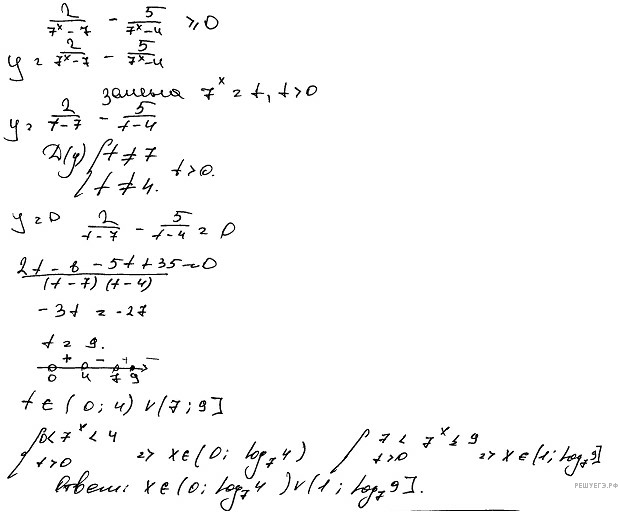 2/(7^x - 7) - 5/(7^x - 4) ≥ 0
y = 2/(7^x - 7) - 5/(7^x - 4)
замена 7^x = t, t > 0
y = 2/(t - 7) - 5/(t - 4)
D(y) { t ≠ 7
t ≠ 4. t > 0.
y = 0 2/(t - 7) - 5/(t - 4) = 0
(2t - 8 - 5t + 35)/((t - 7)(t - 4)) = 0
-3t = -27
t = 9.
+ - + -
0 4 7 9
t ∈ (0; 4) ∨ (7; 9]
{ 0 < 7^x < 4
t > 0 => x ∈ (0; log_7 4) { 7 < 7^x ≤ 9
t > 0 => x ∈ (1; log_7 9]
Ответ: x ∈ (0; log_7 4) ∨ (1; log_7 9].
РЕШУЕГЭ.РФ